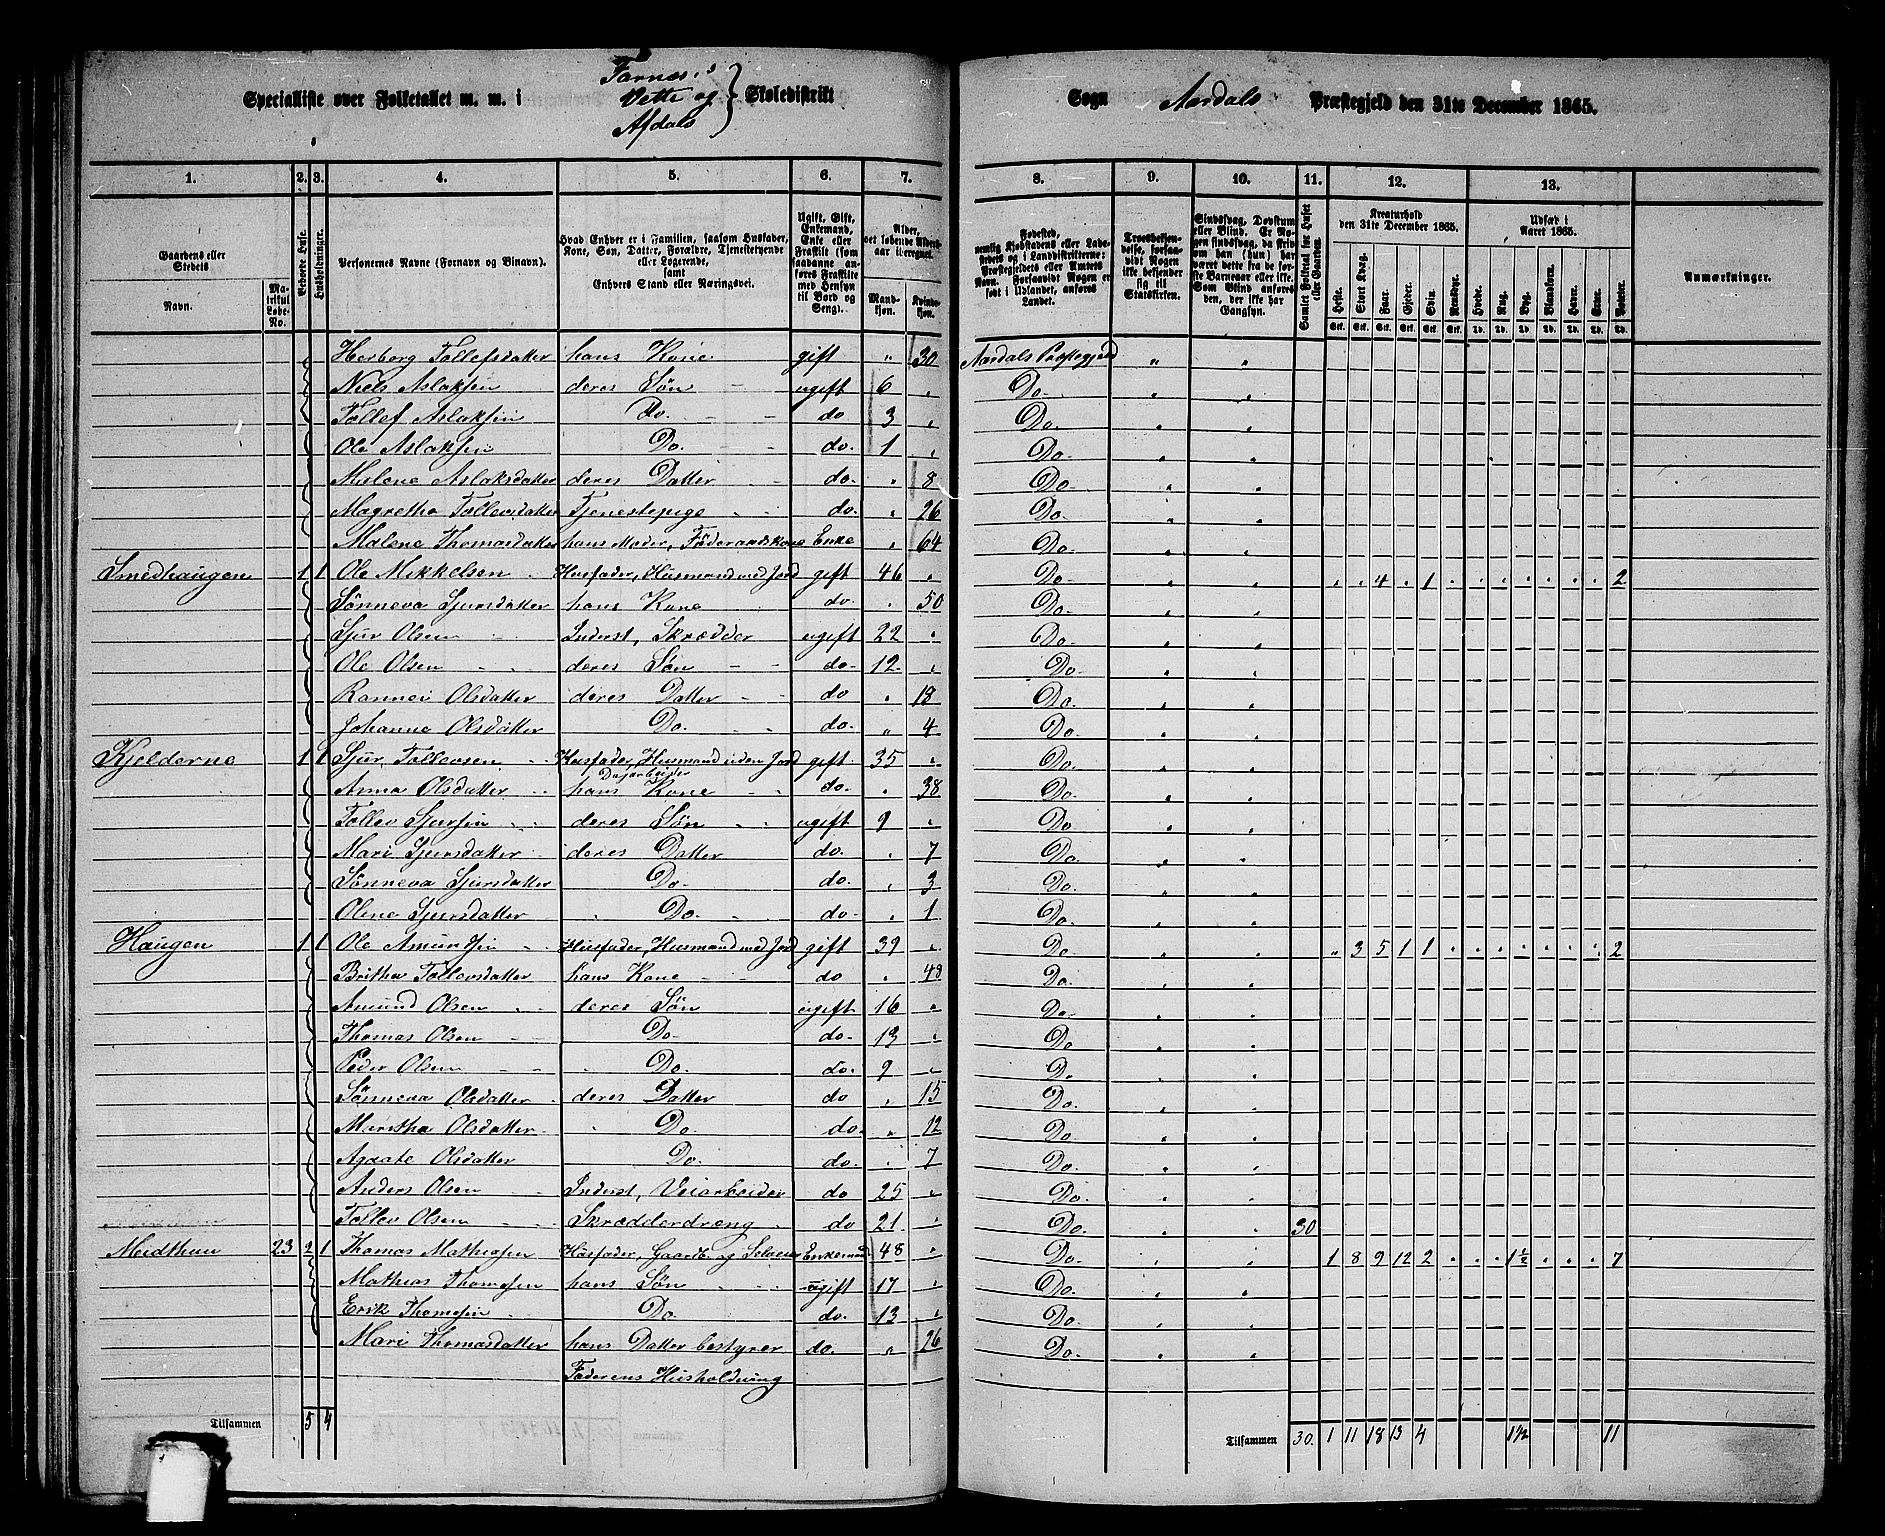 Specialliste over Folketallet m. m. i Farnæs, Vette og Afdals Skoledistrikt
Sogn Aardals Præstegjeld den 31te December 1865.
1. 2. 3. 4. 5. 6. 7. 8. 9. 10. 11. 12. 13.
Gaardens eller Stedets Navn. Matrikul Løbe-No.
Beboede Huse.
Husholdninger.
Personernes Navne (Fornavn og Binavn).
Hvad Enhver er i Familien, saasom Husfader, Kone, Søn, Datter, Forældre, Tjenestetyende eller Logerende, samt Enhvers Stand eller Næringsvei.
Ugift, Gift, Enkemand, Enke eller Fraskilt (som saadanne anføres Fraskilte med Hensyn til Bord og Seng).
Alder, det løbende Alders-aar iberegnet. Mandkjøn. Kvindekjøn.
Fødested, nemlig Kjøbstadens eller Ladestedets og i Landdistrikterne: Præstegjeldets eller Amtets Navn. Forsaavidt Nogen er født i Udlandet, anføres Landet.
Troesbekjendelse, forsaavidt Nogen ikke bekjender sig til Statskirken.
Sindssvag, Døvstum eller Blind. Er Nogen sindssvag, da skrives om han (hun) har været dette fra de første Barneaar eller ikke. Som Blind anføres den, der ikke har Gangsyn.
Samlet Folketal for Huset eller Gaarden.
Kreaturhold den 31te December 1865. Heste. Stort Kvæg. Faar. Gjeder. Svin. Rensdyr.
Udsæd i Aaret 1865. Hvede. Rug. Byg. Blandkorn. Havre. Erter. Poteter.
Anmærkninger.
Herborg Tollefsdatter hans Kone gift " 30 Aardals Præstegjeld " "
Niels Aslaksen deres Søn ugift 6 " Do-
Tollef Aslaksen Do. do 3 " Do.
Ole Aslaksen Do. do. 1 " Do.
Malene Aslaksdatter deres Datter do. " 8 Do.
Magretha Tollevsdatter Tjenestepige do. " 26 Do.
Malene Thomasdatter hans Moder, Föderaadskone Enke " 64 Do.
Smedhaugen 1 1 Ole Mikkelsen Husfader, Husmand med Jord gift 46 " Do- 4 1 2
Sønneva Sjursdatter hans Kone do. " 50 Do.
Sjur Olsen Inderst, Skrædder ugift 22 " Do.
Ole Olsen deres Søn do- 12 " Do.
Rannei Olsdatter deres Datter do " 18 Do.
Johanne Olsdatter Do. do. " 4 Do.
Kjelderne 1 1 Sjur Tollevsen Husfader, Husmand uden Jord gift 35 " Do.
Dagarbeider
Anna Olsdatter hans Kone do. " 38 Do.
Tollev Sjursen deres Søn ugift 9 " Do
Mari Sjursdatter deres Datter do. " 7 Do.
Sønneva Sjursdatter Do- do. " 3 Do.
Oline Sjursdatter Do. do. " 1 Do.
Haugen 1 1 Ole Amundsen Husfader, Husmand med Jord gift 39 " Do. 3 5 1 1 2
Britha Tollevsdatter hans Kone do " 48 Do.
Amund Olsen deres Søn ugift 16 " Do.
Thomas Olsen Do- do- 13 " Do
Peder Olsen Do. do. 9 " Do.
Sønneva Olsdatter deres Datter do " 15 Do.
Maritha Olsdatter Do. do. " 12 Do.
Agaate Olsdatter Do. do. " 7 Do.
Anders Olsen Inderst, Veiarbeider do 25 " Do.
Tollev Olsen Skrædderdreng do 21 " Do. 30
Midthun 23 2 1 Thomas Mathiasen Husfader, Gaardb. og Selveier Enkemand 48 " Do. 1 8 9 12 2 1½ 7
Mathias Thomasen hans Søn ugift 17 " Do.
Erik Thomasen Do. do. 13 " Do.
Mari Thomasdatter hans Datter bestyrer do. " 26 Do.
Faderens Husholdning
Tilsammen 5 4 Tilsammen 30. 1 11 18 13 4 1½ 11